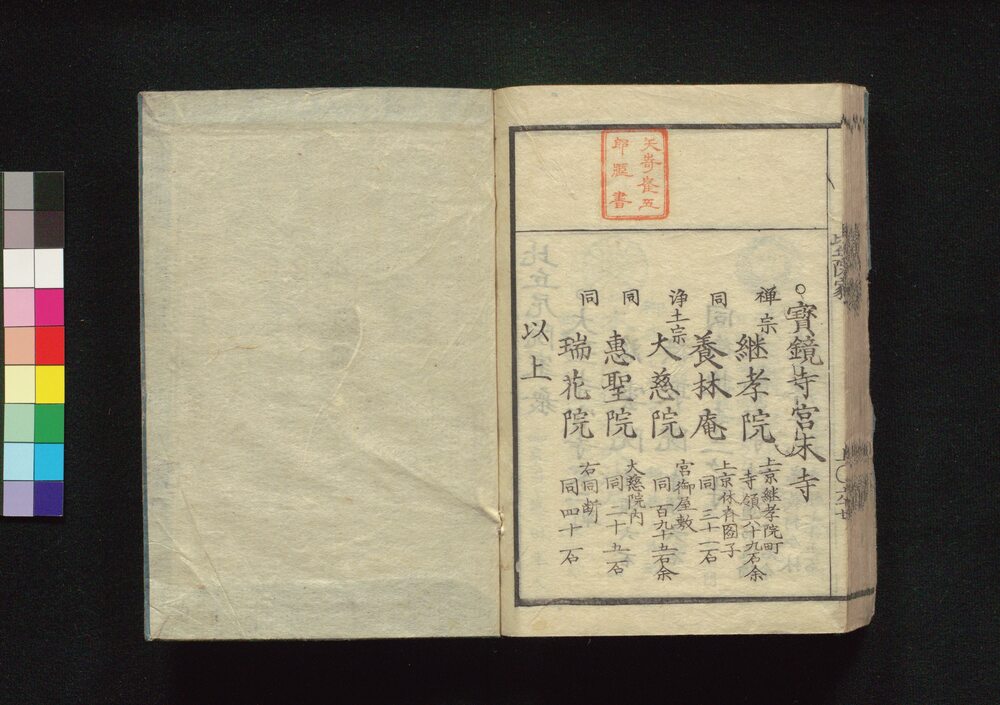 比丘院家
○寶鏡寺宮末寺
禅宗
継孝院
上京継孝院町
寺領八十九石余
同
養林庵
上京休斉圖子
同 三十一石
浄土宗
大慈院
宮御屋敷
同 百九十五石余
同
惠聖院
大慈院内
同 二十九石
同
瑞花院
右同断
同四十石
以上